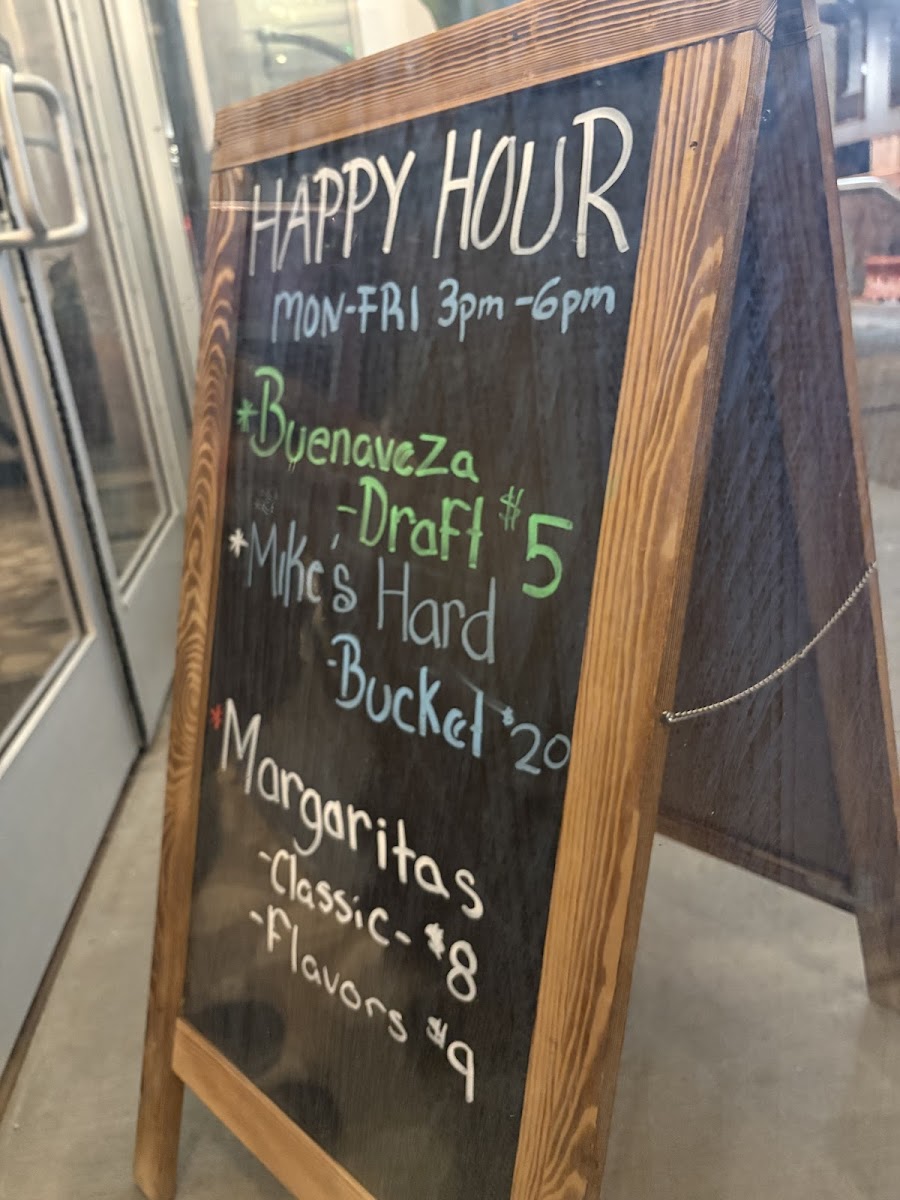 HAPPY HOUR
MON-FRI 3pm-6pm
*Buenaveza
-Draft $5
*Mike's Hard
-Bucket $20
*Margaritas
-Classic- $8
-Flavors $9